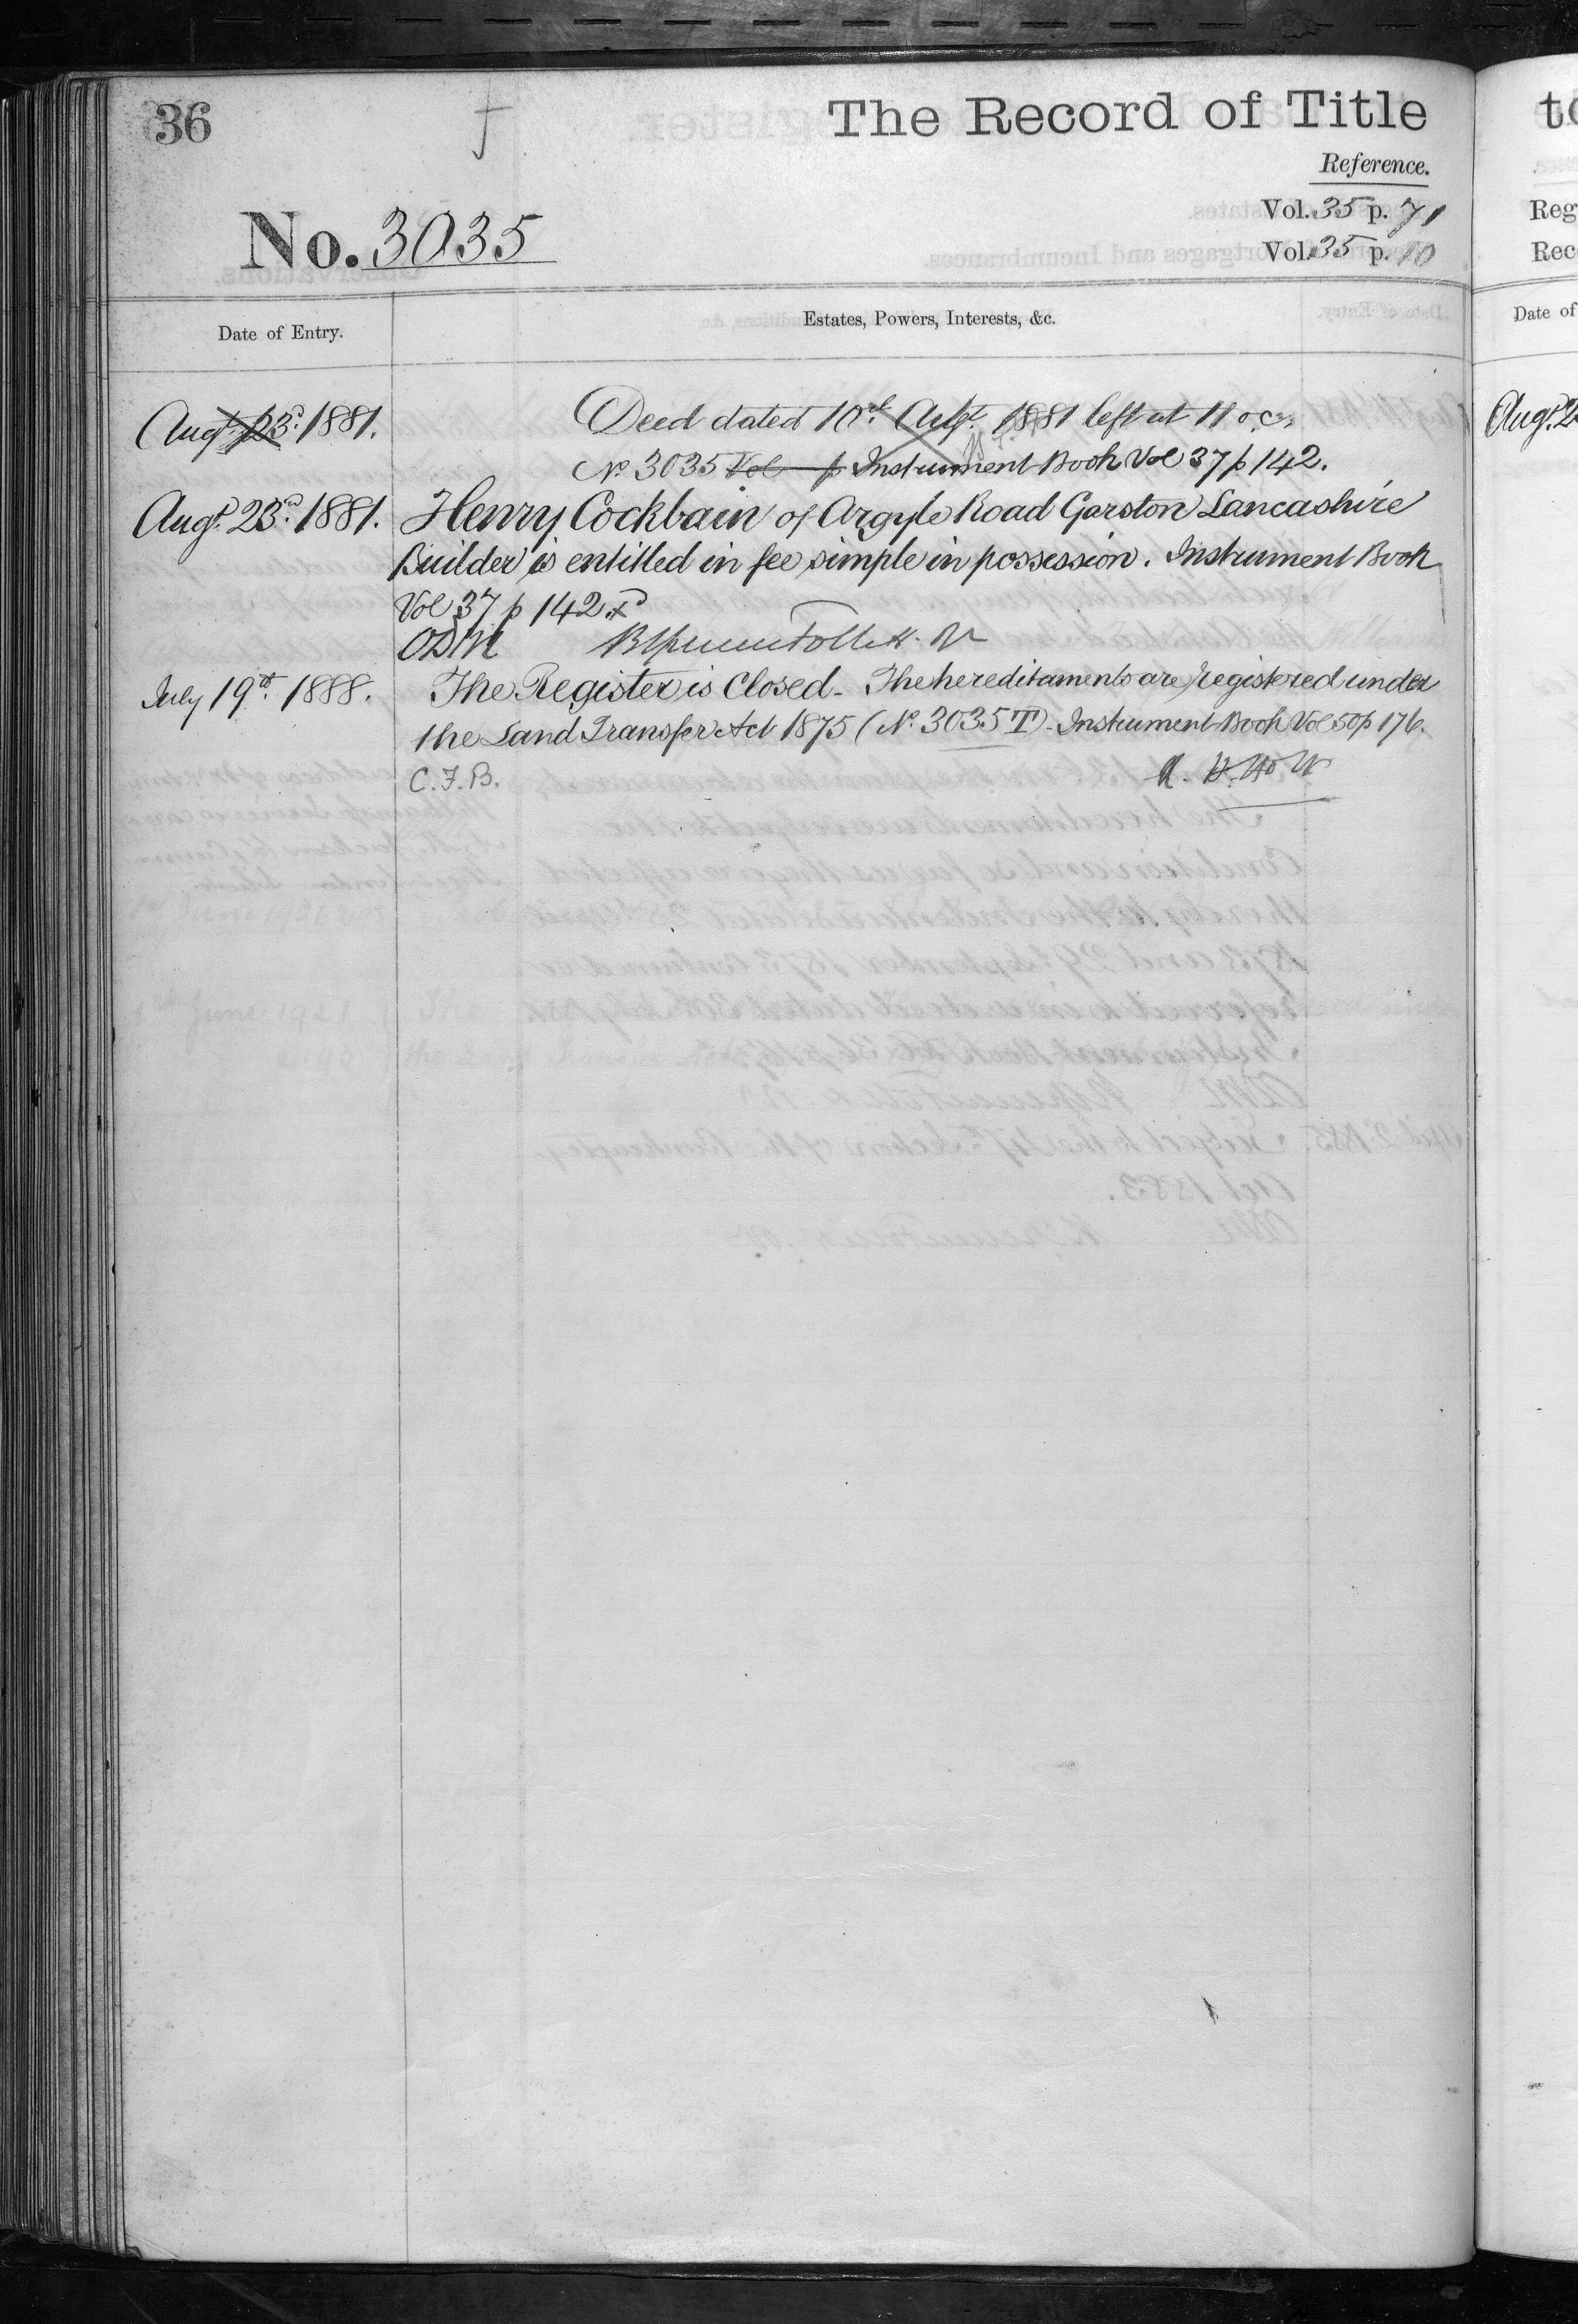 36
The Record of Title
Reference.
Vol. 35 p. 71
Vol. 35 p. 10
No. 3035
Date of Entry.
Estates, Powers, Interests, &c.
Augt. 23d. 1881.
Deed dated 10th Augt. 1881 left at 11 o.c.
No. 3035 Vol p Instrument Book Vol 37 p 142.
Augt. 23d. 1881.
Henry Cockbain of Argyle Road Garston Lancashire
Builder is entitled in fee simple in possession. Instrument Book
Vol 37 p 142.
July 19th. 1888.
The Register is Closed - The hereditaments are registered under
the Land Transfer Act 1875 (No. 3035 T) - Instrument Book Vol 50 p 176.
C.F.B.
Reg
Rec
Date of
Augt. 2